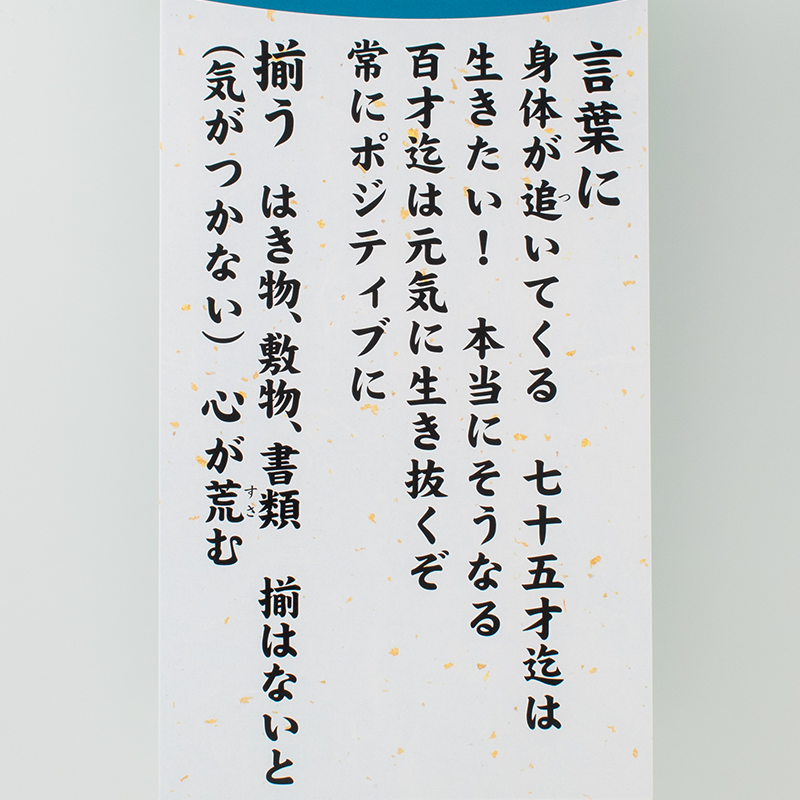 言葉に
身体が追いてくる　七十五才迄は
生きたい！　本当にそうなる
百才迄は元気に生き抜くぞ
常にポジティブに
揃う　はき物、敷物、書類　揃はないと
（気がつかない）　心が荒む
つ
すさ